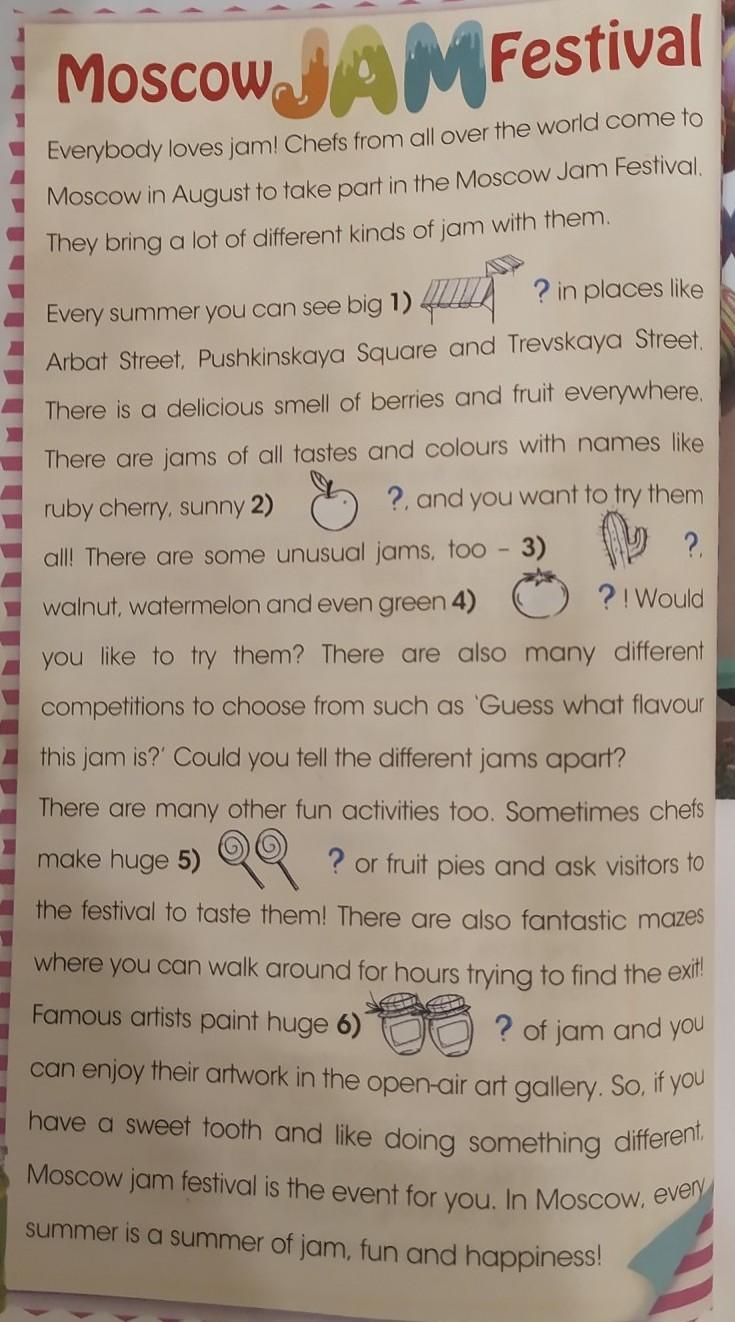 Moscow JAM Festival
Everybody loves jam! Chefs from all over the world come to
Moscow in August to take part in the Moscow Jam Festival.
They bring a lot of different kinds of jam with them.
Every summer you can see big 1) ? in places like
Arbat Street, Pushkinskaya Square and Trevskaya Street.
There is a delicious smell of berries and fruit everywhere.
There are jams of all tastes and colours with names like
ruby cherry, sunny 2) ?, and you want to try them
all! There are some unusual jams, too – 3) ?,
walnut, watermelon and even green 4) ? ! Would
you like to try them? There are also many different
competitions to choose from such as 'Guess what flavour
this jam is?' Could you tell the different jams apart?
There are many other fun activities too. Sometimes chefs
make huge 5) ? or fruit pies and ask visitors to
the festival to taste them! There are also fantastic mazes
where you can walk around for hours trying to find the exit!
Famous artists paint huge 6) ? of jam and you
can enjoy their artwork in the open-air art gallery. So, if you
have a sweet tooth and like doing something different,
Moscow jam festival is the event for you. In Moscow, every
summer is a summer of jam, fun and happiness!